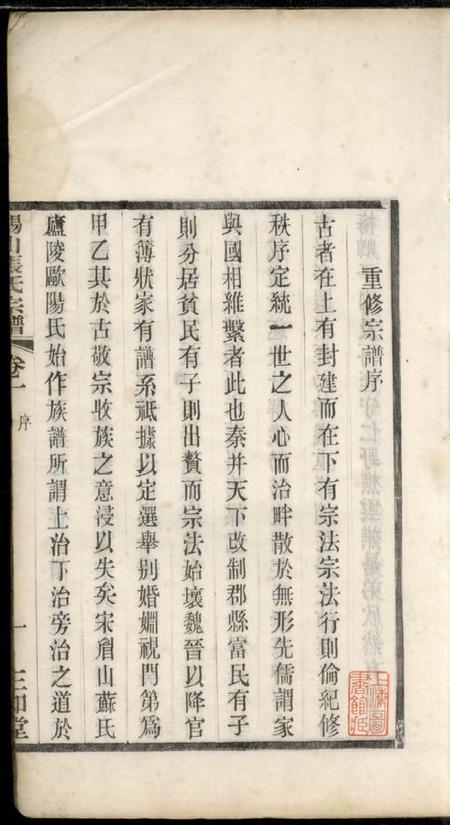 重修宗譜序
古者在上有封建而在下有宗法宗法行則倫紀修
秩序定統一世之人心而治畔散於無形先儒謂家
與國相維繫者此也秦并天下改制郡縣富民有子
則分居貧民有子則出贅而宗法始壞魏晉以降官
有簿狀家有譜系祗據以定選舉别婚婣視門第爲
甲乙其於古敬宗收族之意浸以失矣宋眉山蘇氏
廬陵歐陽氏始作族譜所謂上治下治旁治之道於
錫山張氏宗譜 卷一 序 一
上海圖書館藏